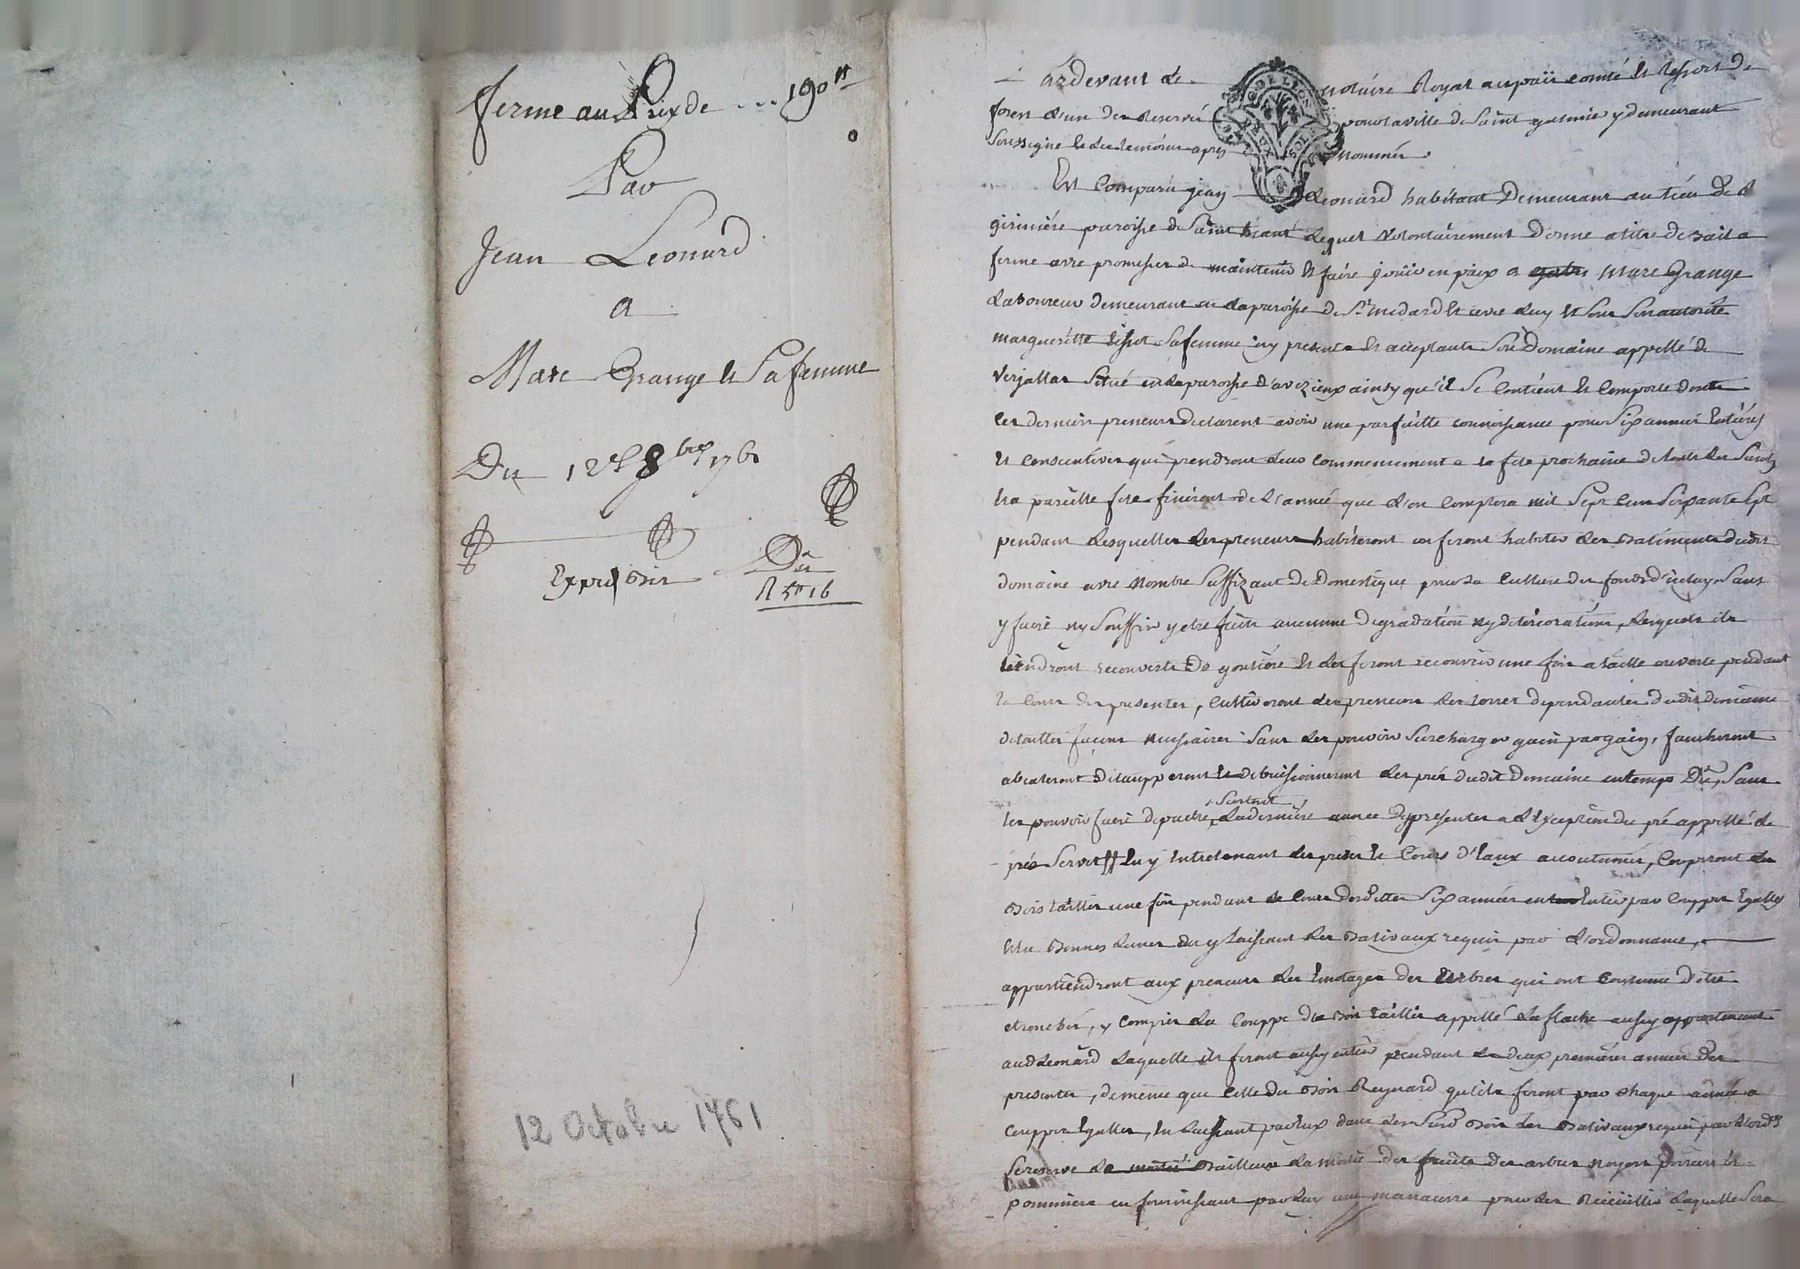 ferme au Prix de ... 190 tt
Par
Jean Leonard
a
Marc Grange et Sa femme
Du 12e 8bre 1761
Du
12 Octobre 1761
ardevant le notaire Royal au païs comté et Ressort de
forest l'un des Reservés pour la ville de Saint galmier y demeurant
Soussigné et les temoins apres nommés
Est Comparu jean Leonard habitant Demeurant au lieu de la
giriniere paroisse de Saint Lequel Volontairement Donne a titre de bail a
ferme avec promesse de maintenir et faire jouir en paix a Marc Grange
Laboureur demeurant en la paroisse de St medard et avec luy et Sous Son autorité
margueritte Sa femme icy presents et acceptants Son Domaine appellé de
Verjallas Situé en la paroisse d'avezieux ainsy qu'il Se Contient et Comporte dont
les dernier preneurs declarent avoir une parfaitte connoissance pour Six années Entieres
et Consecutives qui prendront leur commencement a la fete prochaine de toute les Saints
Et a pareille fete finiront de l'année que l'on Comptera mil Sept Cent Soixante Sept
pendant Lesquelles les preneurs habiteront ou feront habiter les Batiments dudit
domaine avec Nombre Suffizant de Domestique pour la Culture des fonds d'iceluy Sans
y faire ny Souffrir y etre faitte aucunne degradation ny deterioration, Lesquels ils
tiendront recouverts de goutiere et les feront recouvrir une fois a taille ouverte pendant
le Cours des presentes, Cultiveront les preneurs les terres dependantes dudit domaine
de toutes façons necessaires Sans les pouvoir Surcharger gain par gain, faucheront
les prés dudit Domaine en temps Du, Sans
surtout
les pouvoir faire depaitre, La derniere année des presentes a l'Exception du pré appellé de
Entretenant les prises et Cours d'Eaux accoutumés, Couperont les
Bois taillis une fois pendant le Cours desdittes Six années par Couppes Egalles
Et en Bonnes Lunes en y laissant les Baliveaux requis par l'ordonnance,
appartiendront aux preneurs les Emotages des Arbres qui ont Coutume d'etre
etronchés, y Compris la Couppe du Bois taillis appellé La flache aussy appartenant
aud Leonard Laquelle ils feront aussy pendant les deux premieres années des
presentes, de meme que Celle du Bois Reynard qu'ils feront par chaque année a
Couppes Egalles, En Laissant par Eux dans les Susd Bois les Baliveaux requis par l'ord.
Se reserve le Bailleur La moitié des fruits des arbres Noyers poiriers et
pommiers en fournissant par luy une manœuvre pour les Recüeillir Laquelle Sera